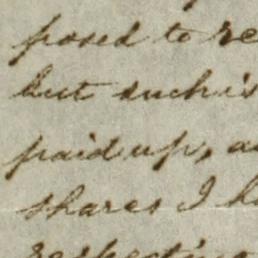 posed to re
but such is
paid up, a
shares I h
respecting